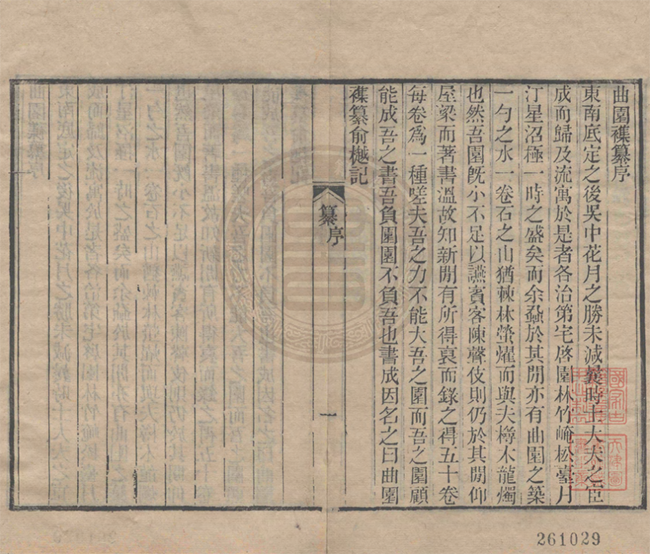 曲園襍纂序
東南底定之後吳中花月之勝未減曩時士大夫之宦
成而歸及流寓於是者各治第宅啓園林竹崦松臺月
汀星沼極一時之盛矣而余蝨於其閒亦有曲園之築
一勺之水一卷石之山猶棘林螢燿而與夫樳木龍燭
也然吾園旣小不足以讌賓客陳聲伎則仍於其閒仰
屋梁而著書溫故知新閒有所得裒而錄之得五十卷
每卷爲一種嗟夫吾之力不能大吾之園而吾之園顧
能成吾之書吾負園園不負吾也書成因名之曰曲園
襍纂俞樾記
纂序
一
261029